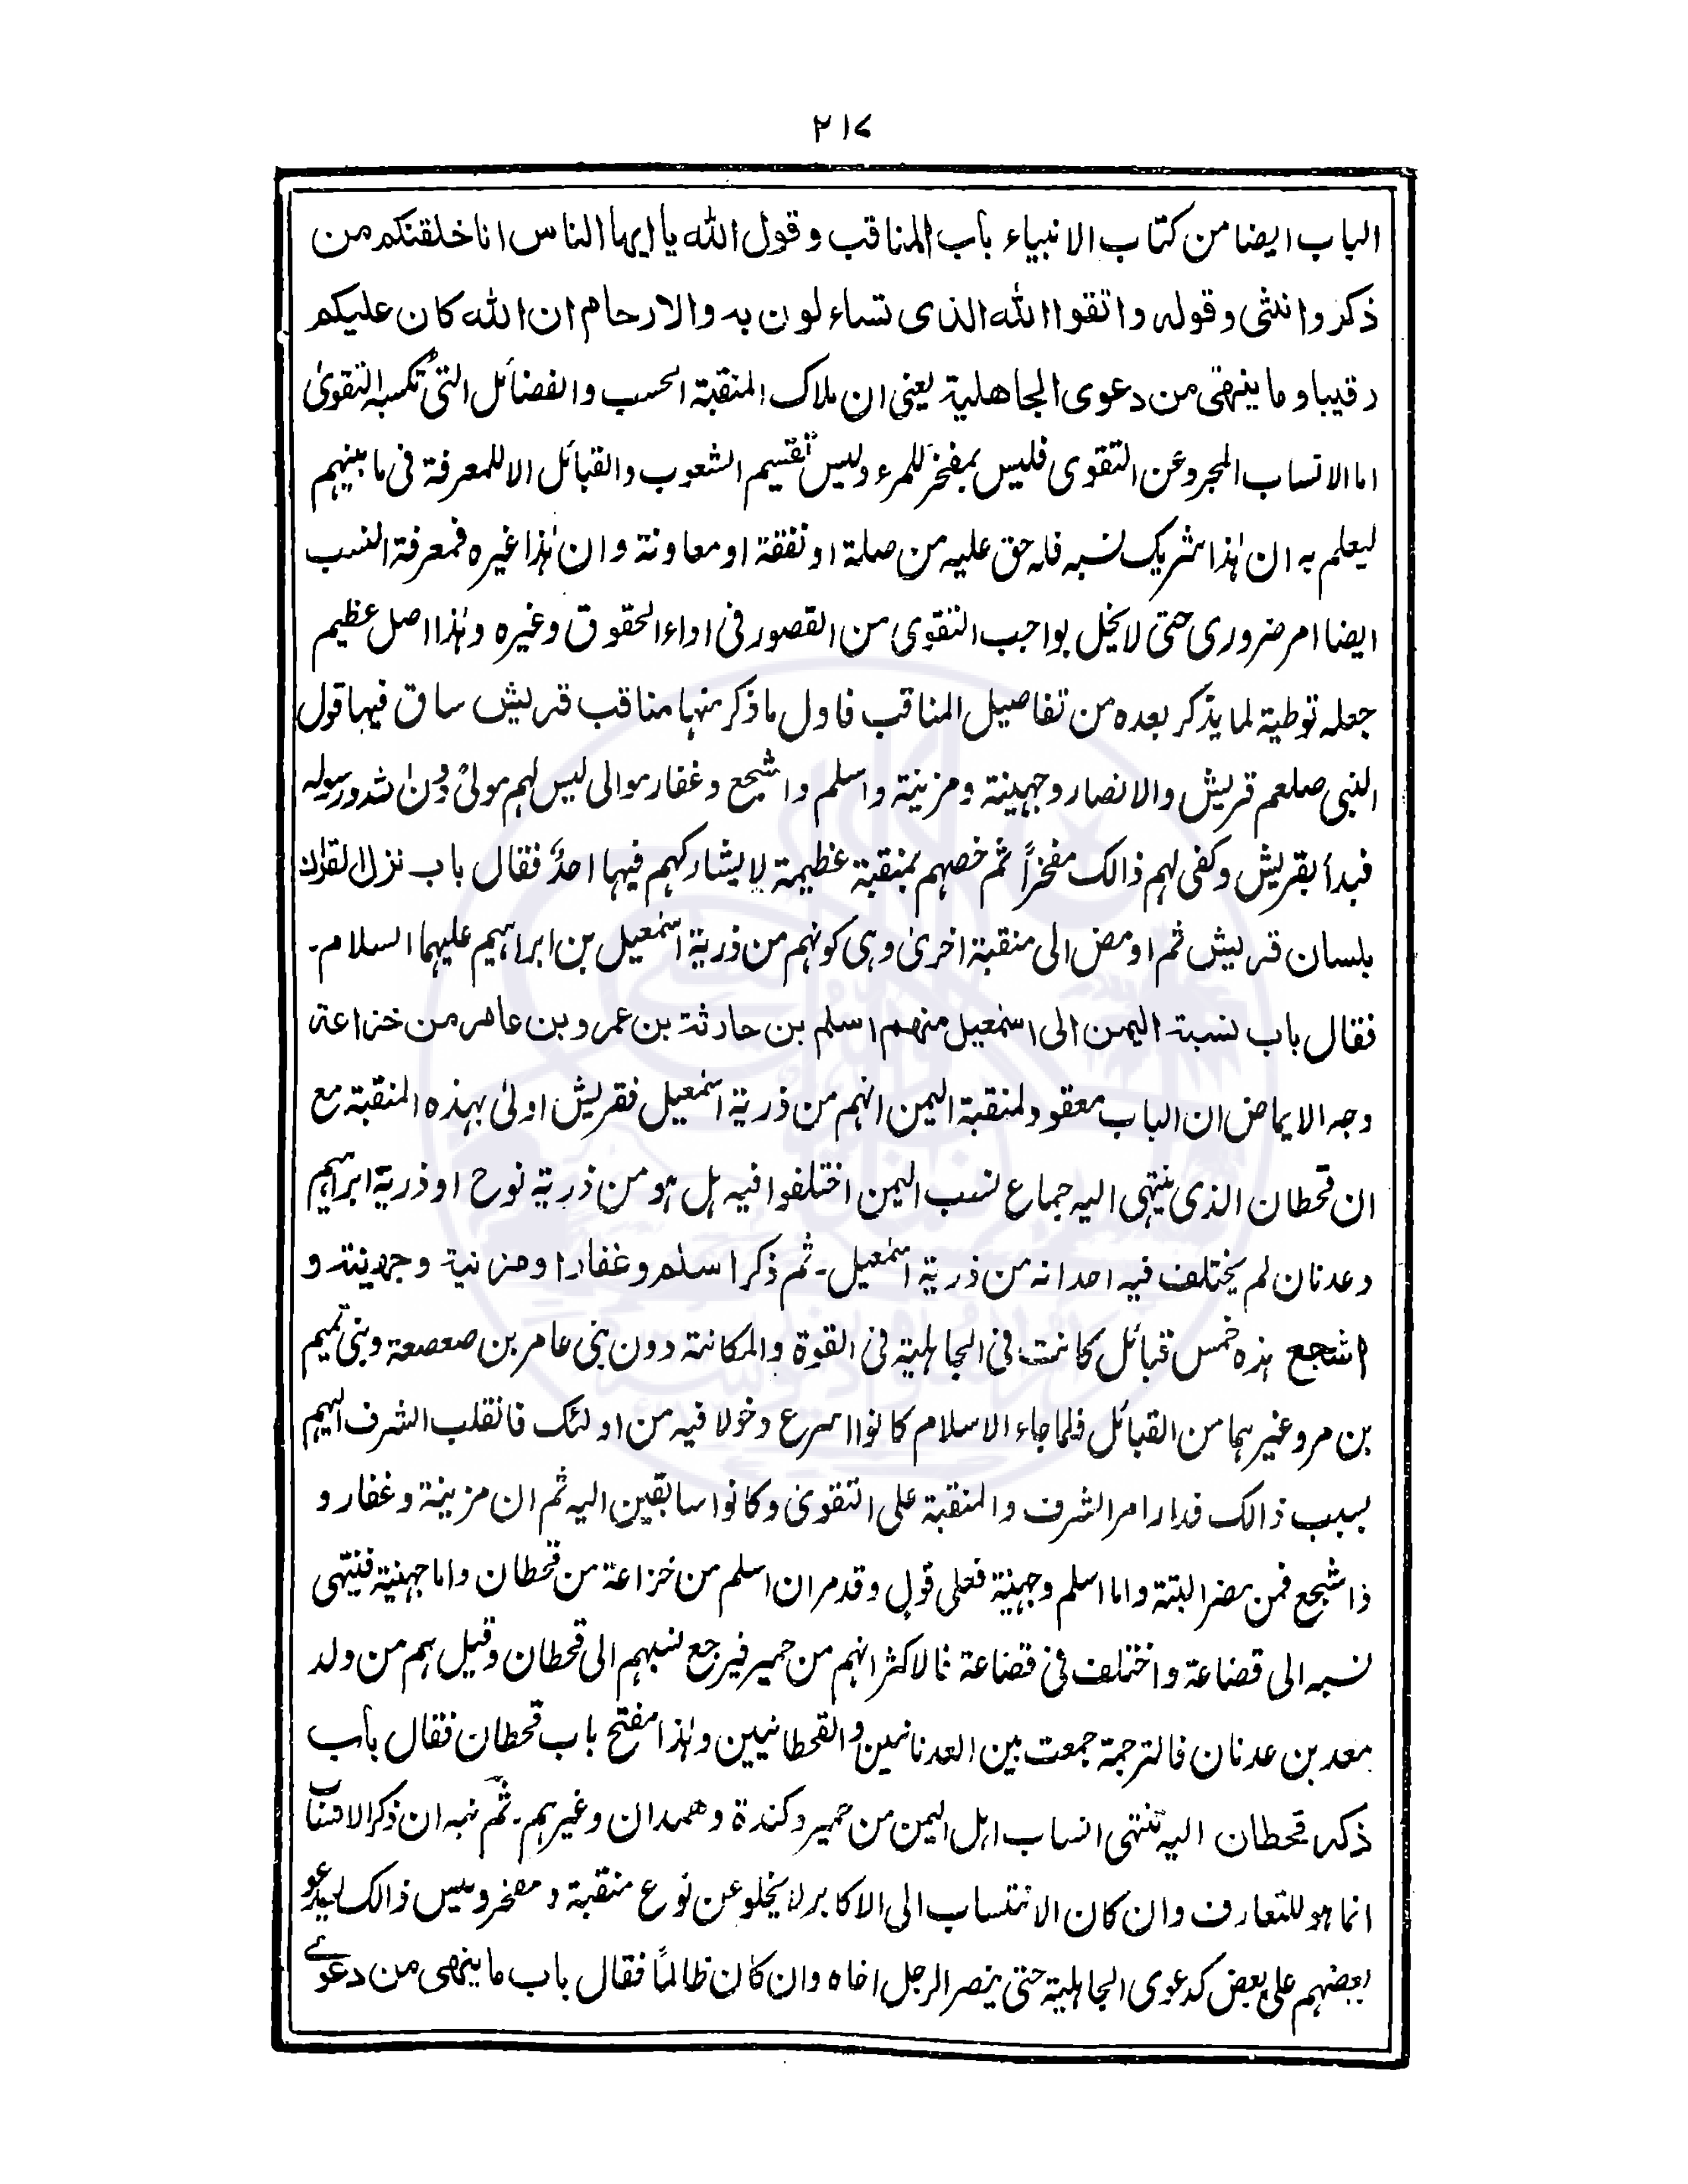 ۲۱۷
الباب ايضا من كتاب الانبياء باب المناقب وقول الله يا ايها الناس انا خلقنكم من
ذكر وانثى وقوله واتقوا الله الذى تساءلون به والارحام ان الله كان عليكم
رقيبا وما ينهى من دعوى الجاهلية يعنى ان ملاك المنقبة الحسب والفضائل التى تكسبه التقوىٰ
اما الانساب المجرد عن التقوى فليس بمفخر للمرء وليس تقسيم الشعوب والقبائل الا للمعرفة فى ما بينهم
ليعلم به ان هٰذا شريك نسبه فله حق عليه من صلة او نفقة او معاونة وان هٰذا غيره فمعرفة النسب
ايضا امر ضرورى حتى لا يخل بواجب التقوى من القصور فى اداء الحقوق وغيره وهٰذا اصل عظيم
جعله توطية لما يذكر بعده من تفاصيل المناقب فاول ما ذكر منها مناقب قريش ساق فيها قول
النبى صلعم قريش والانصار وجهينة ومزينة واسلم واشجع وغفار موالى ليس لهم مولىً دون الله ورسوله
فبدأ بقريش وكفى لهم ذالك مفخراً ثم خصهم بمنقبة عظيمة لا يشاركهم فيها احدٌ فقال باب نزل القراٰن
بلسان قريش ثم اومض الى منقبة اخرىٰ وهى كونهم من ذرية اسمٰعيل بن ابراهيم عليهما السلام۔
فقال باب نسبة اليمن الى اسمٰعيل منهم اسلم بن حارثة بن عمرو بن عامر من خزاعة
وجه الايماض ان الباب معقود لمنقبة اليمن انهم من ذرية اسمٰعيل فقريش اولىٰ بهذه المنقبة مع
ان قحطان الذى ينتهى اليه جماع نسب اليمن اختلفوا فيه هل هو من ذرية نوح او ذرية ابراهيم
وعدنان لم يختلف فيه احد انه من ذرية اسمٰعيل۔ ثم ذكر اسلم وغفارا ومزنية وجهينة و
اشجع هذه خمس قبائل كانت فى الجاهلية فى القوة والمكانة دون بنى عامر بن صعصعة وبنى تميم
بن مر وغيرهما من القبائل فلما جاء الاسلام كانوا اسرع دخولا فيه من اولئك فانقلب الشرف اليهم
بسبب ذالك فدار امر الشرف والمنقبة على التقوىٰ وكانوا سابقين اليه ثم ان مزينة وغفار و
ذا شجع فمن مضر البتة واما اسلم وجهينة فعلى قول وقد مر ان اسلم من خزاعة من قحطان واما جهنية فينتهى
نسبه الى قضاعة واختلف فى قضاعة فالاكثر انهم من حمير فيرجع نسبهم الى قحطان وقيل هم من ولد
معد بن عدنان فالترجمة جمعت بين العدنانيين والقحطانيين وهٰذا مفتح باب قحطان فقال باب
ذكر قحطان اليه ينتهى انساب اهل اليمن من حمير وكندة وهمدان وغيرهم۔ ثم نبه ان ذكر الانساب
انما هو للتعارف وان كان الانتساب الى الاكابر لا يخلو عن نوع منقبة و مفخر وليس ذالك ليدعو
بعضهم على بعض كدعوى الجاهلية حتى ينصر الرجل اخاه وان كان ظالماً فقال باب ما ينهى من دعوے